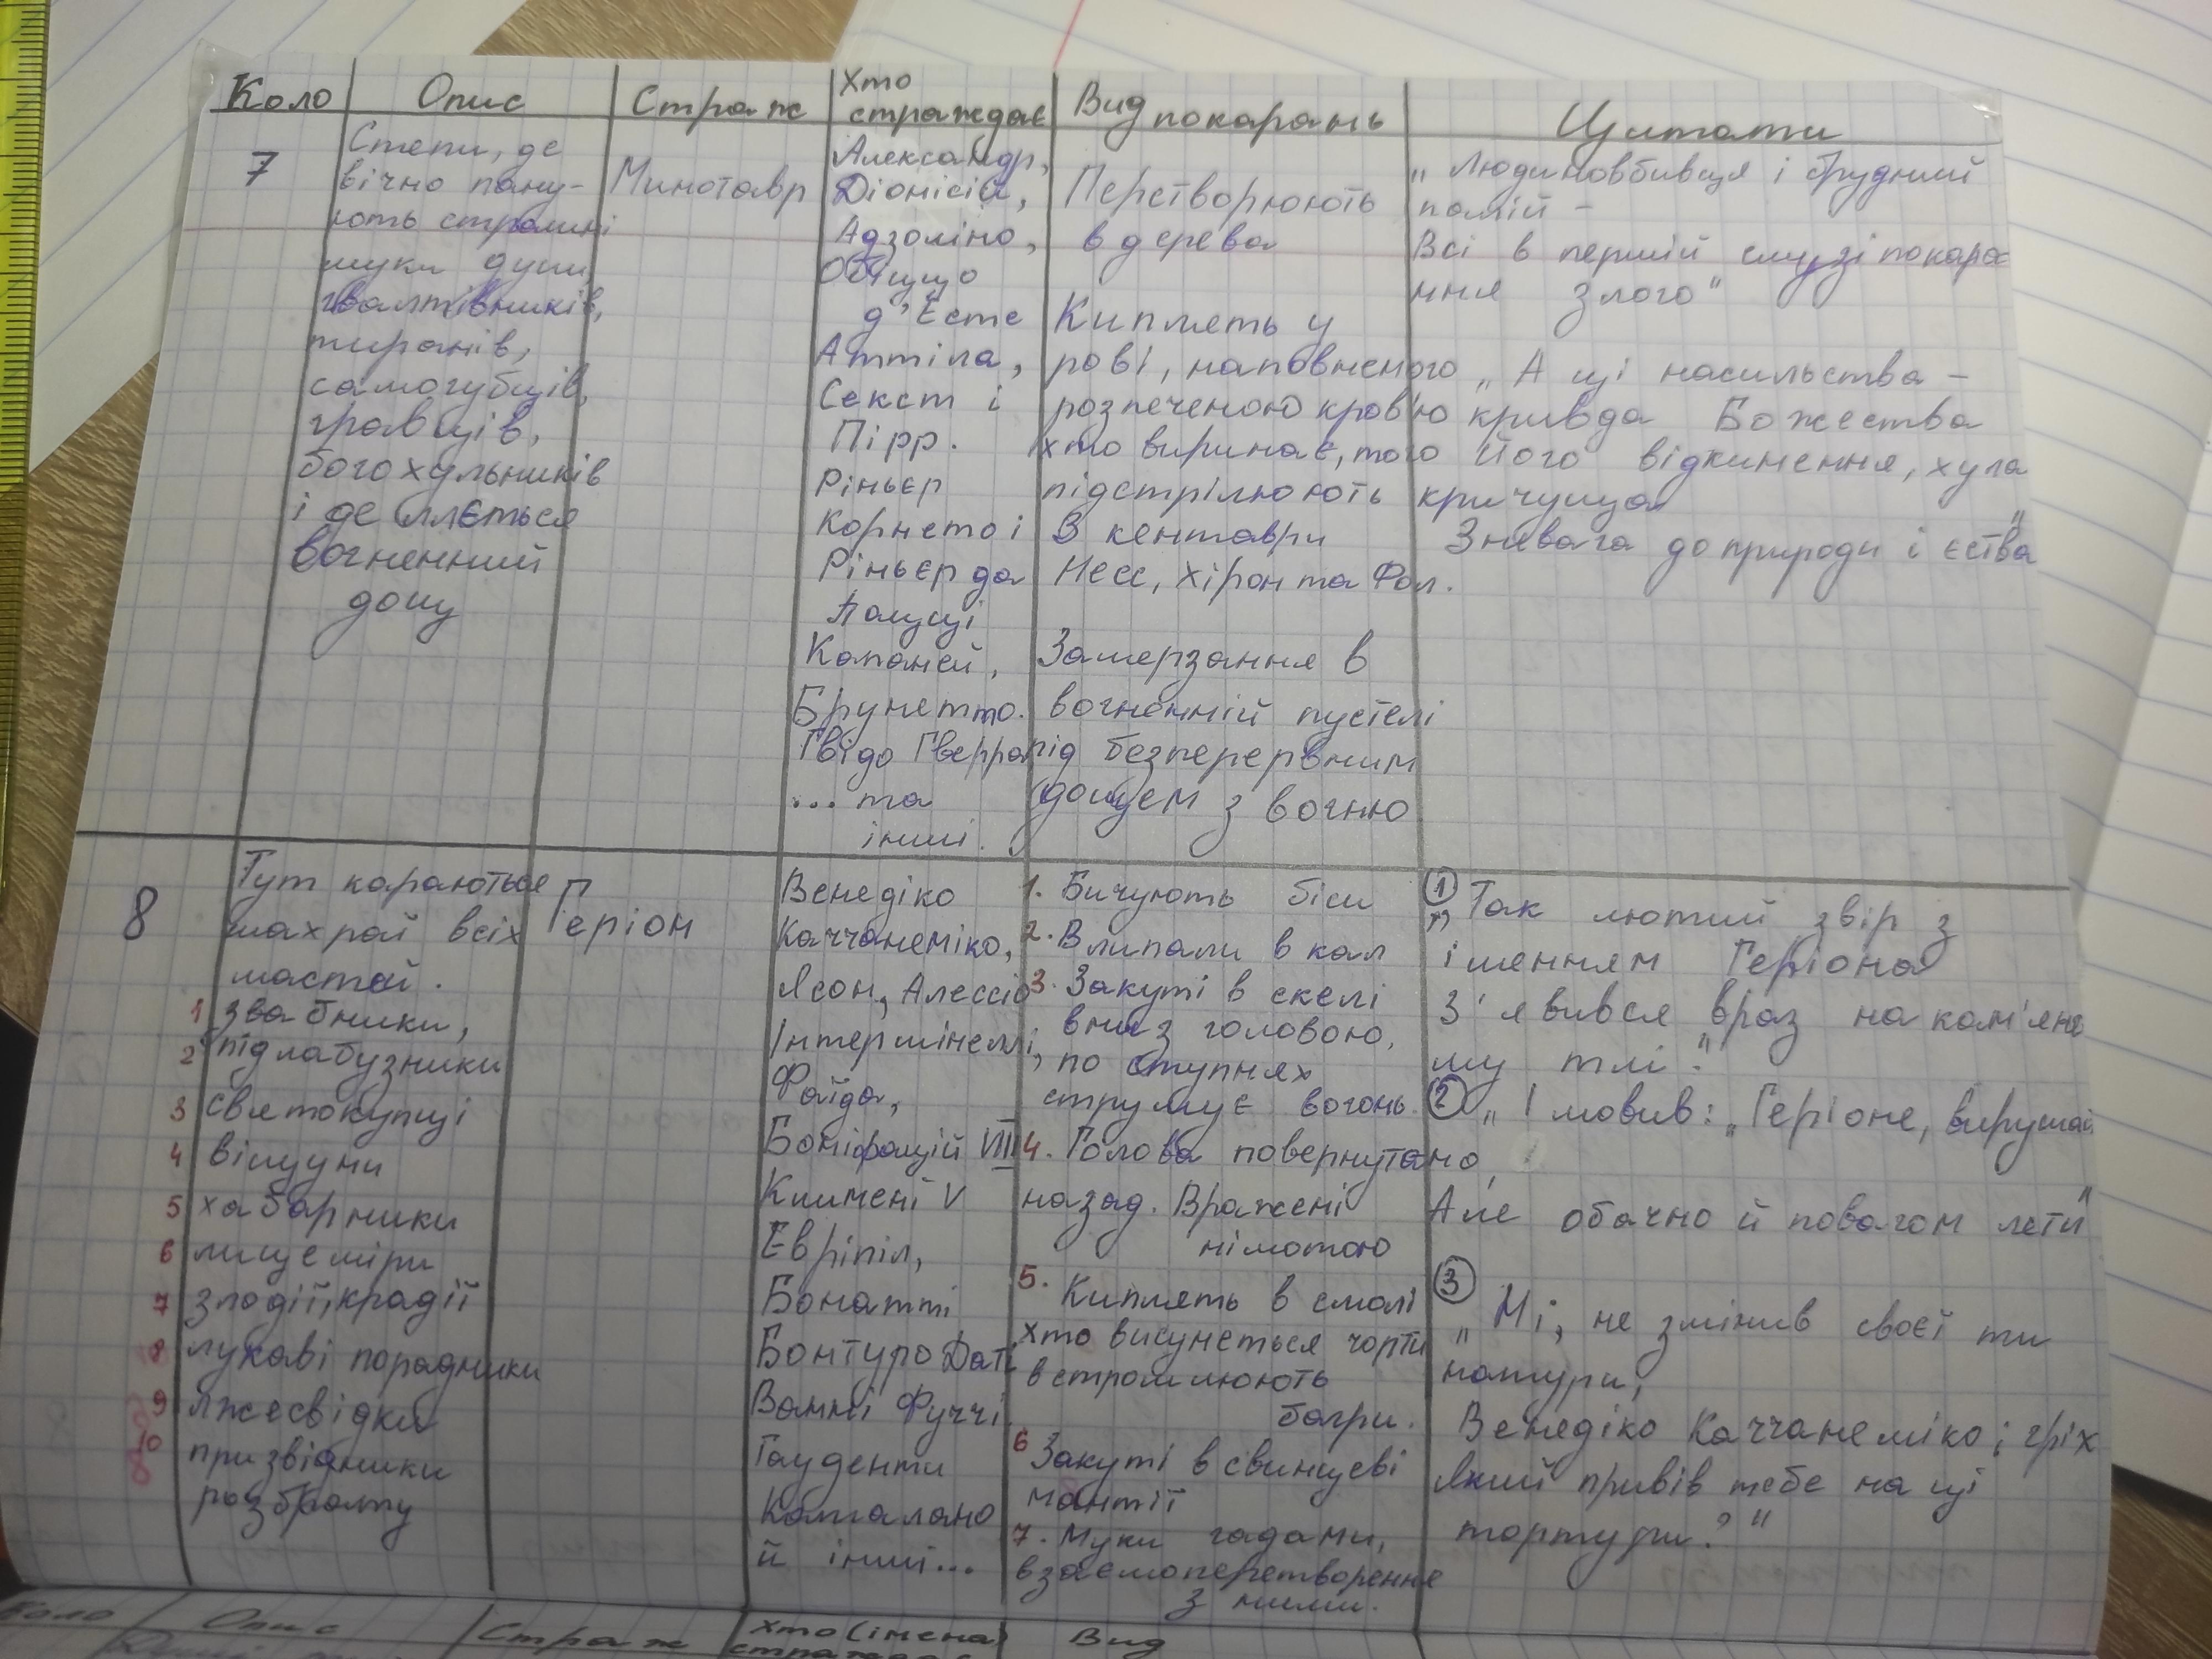 Коло
Опис
Страж
Хто
страждає
Вид покарань
Цитати
7
Степи, де
вічно пану-
ють страшні
муки душ
гвалтівників,
тиранів,
самогубців,
гравців,
богохульників
і де ллється
вогненний
дощ
Минотавр
Александр,
Діонісій,
Адзоліно,
Обіццо
д'Есте
Аттіла,
Секст і
Пірр.
Ріньєр
Корнето і
Ріньєр да
Пацці
Капаней,
Брунетто.
Гвідо Гверра
... та
інші.
Перетворюють
в дерева
Киплять у
рові, наповненого
розпеченою кров'ю
хто виринає, того
підстрілюють
3 кентаври
Несс, Хірон та Фол.
Замерзання в
вогненній пустелі
під безперервним
дощем з вогню
„Людиновбивця і брудний
палій –
Всі в першій смузі покара
ння злого"
„А ці насильства –
кривда Божества
Його відкинення, хула
кричуща
Зневага до природи і єства"
8
Тут караються
шахраї всіх
мастей.
1 звабники,
2 підлабузники
3 святокупці
4 віщуни
5 хабарники
6 лицеміри
7 злодії, крадії
8 лукаві порадники
9 лжесвідки
10 призвідники
розбрату
Геріон
Венедіко
Каччанеміко,
Ясон, Алессіо
Інтермінеллі,
Фаїда,
Боніфацій VIII
Климент V
Евріпіл,
Бонатті
Бонтуро Даті
Ванні Фуччі
Гауденти
Каталано
й інші...
1. Бичують біси
2. Влипали в кал
3. Закуті в скелі
вниз головою,
по ступнях
струмує вогонь.
4. Голова повернута
назад. Вражені
німотою
5. Киплять в смолі
хто висунеться чорти
встромлюють
багри.
6 Закуті в свинцеві
мантії
7. Муки гадами,
взаємоперетворення
з ними.
① „Так лютий звір з
іменням Геріона
З'явився враз на кам'яно
му тлі".
② „І мовив: „Геріоне, вирушай
но,
Але обачно й повагом лети"
③
„Ні, не змінив своєї ти
натури,
Венедіко Каччанеміко; гріх
Який привів тебе на ці
тортури?"
Коло
Опис
Страж
Хто (імена)
Вид